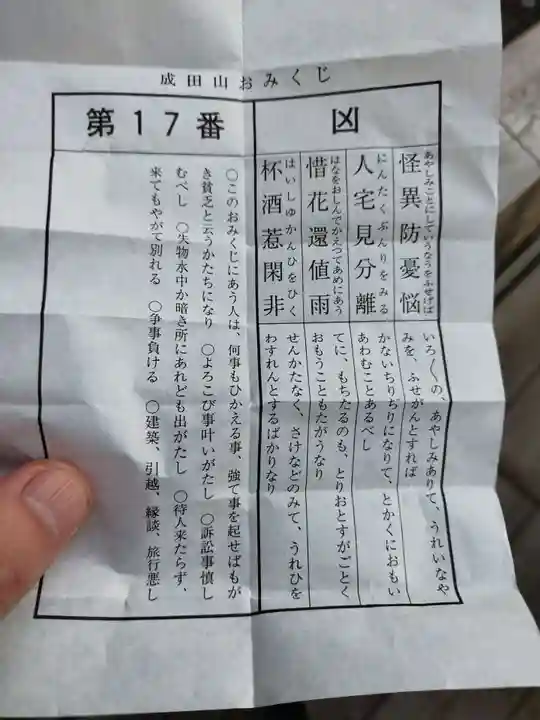 成田山おみくじ
第17番
凶
あやしみことにしていうなうをふせげば
怪異防憂悩
にんたくぶんりをみる
人宅見分離
はなをおしんでかえつてあめにあう
惜花還値雨
はいしゆかんひをひく
杯酒惹閑非
いろ〳〵の、あやしみありて、うれいなや
みを、ふせがんとすれば
かないちりぢりになりて、とかくにおもい
あわむことあるべし
てに、もちたるのも、とりおとすがごとく
おもうこともたがうなり
せんかたなく、さけなどのみて、うれひを
わすれんとするばかりなり
〇このおみくじにあう人は、何事もひかえる事、強て事を起せばもが
き貧乏と云うかたちになり 〇よろこび事叶いがたし 〇訴訟事慎し
むべし 〇失物水中か暗き所にあれども出がたし 〇待人来たらず、
来てもやがて別れる 〇争事負ける 〇建築、引越、縁談、旅行悪し